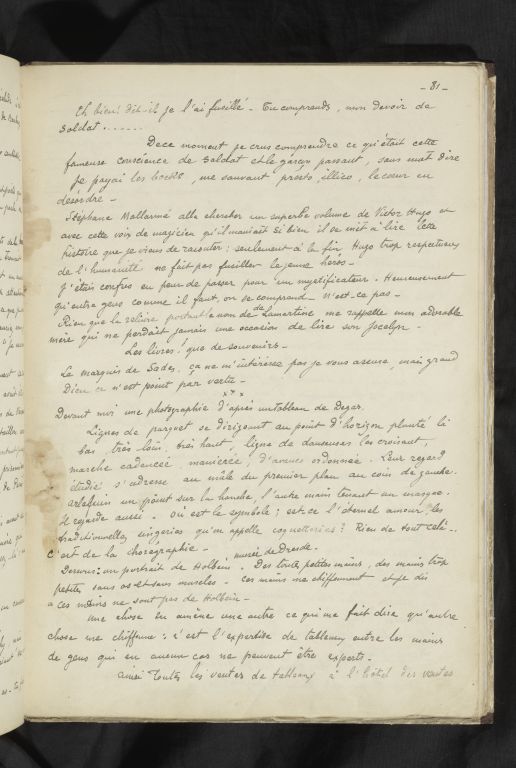 - 81 -
Eh bien! dit-il je l'ai fusillé - Tu comprends, mon devoir de
soldat ......
De ce moment je crus comprendre ce qu'était cette
fameuse conscience de soldat et le garçon passant, sans mot dire
je payai les bocks, me sauvant presto, illico, le cœur en
désordre -
Stéphane Mallarmé alla chercher un superbe volume de Victor Hugo et
avec cette voix de magicien qu'il maniait si bien il se mit à lire cette
histoire que je viens de raconter: seulement à la fin Hugo trop respectueux
de l'humanité ne fait pas fusiller le jeune héros -
J'étais confus en peur de passer pour un mystificateur. Heureusement
qu'entre gens comme il faut, on se comprend - n'est-ce pas -
Rien que la reliure portant le nom de Lamartine me rappelle mon adorable
mère qui ne perdait jamais une occasion de lire son Jocelyn -
Les livres! que de souvenirs -
Le marquis de Sade, ça ne m'intéresse pas je vous assure, mais grand
Dieu ce n'est point par vertu -
x x x
Devant moi une photographie d'après un tableau de Degas.
Lignes de parquet se dirigeant au point d'horizon planté là
bas, très loin, très haut, ligne de danseuses les croisant,
marche cadencée maniérée, d'avance ordonnée. Leur regard
étudié s'adresse au mâle du premier plan au coin de gauche.
Arlequin un poing sur la hanche, l'autre main tenant un masque.
Il regarde aussi. Où est le symbole; est-ce l'éternel amour, les
traditionnelles singeries qu'on appelle coquetteries? Rien de tout cela -
C'est de la chorégraphie -
Dessous: un portrait de Holbein, musée de Dresde. Des toutes petites mains, des mains trop
petites sans os et sans muscles - Ces mains me chiffonnent et je dis
: ces mains ne sont pas de Holbein -
Une chose en amène une autre ce qui me fait dire qu'autre
chose me chiffonne: c'est l'expertise de tableaux entre les mains
de gens qui en aucun cas ne peuvent être experts -
Ainsi toutes les ventes de tableaux à l'hôtel des ventes